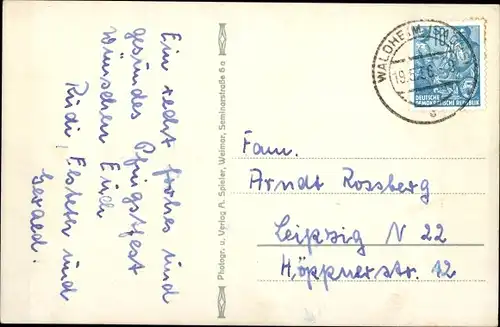 Ein recht frohes und
gesundes Pfingstfest
wünschen Euch
Rudi, und
Gerald!
Photogr. u. Verlag A. Spieler, Weimar, Seminarstraße 6a
WALDHEIM
DEUTSCHE
DEMOKRATISCHE REPUBLIK
Fam.
Arndt Rossberg
Leipzig N 22
Höppnerstr. 12